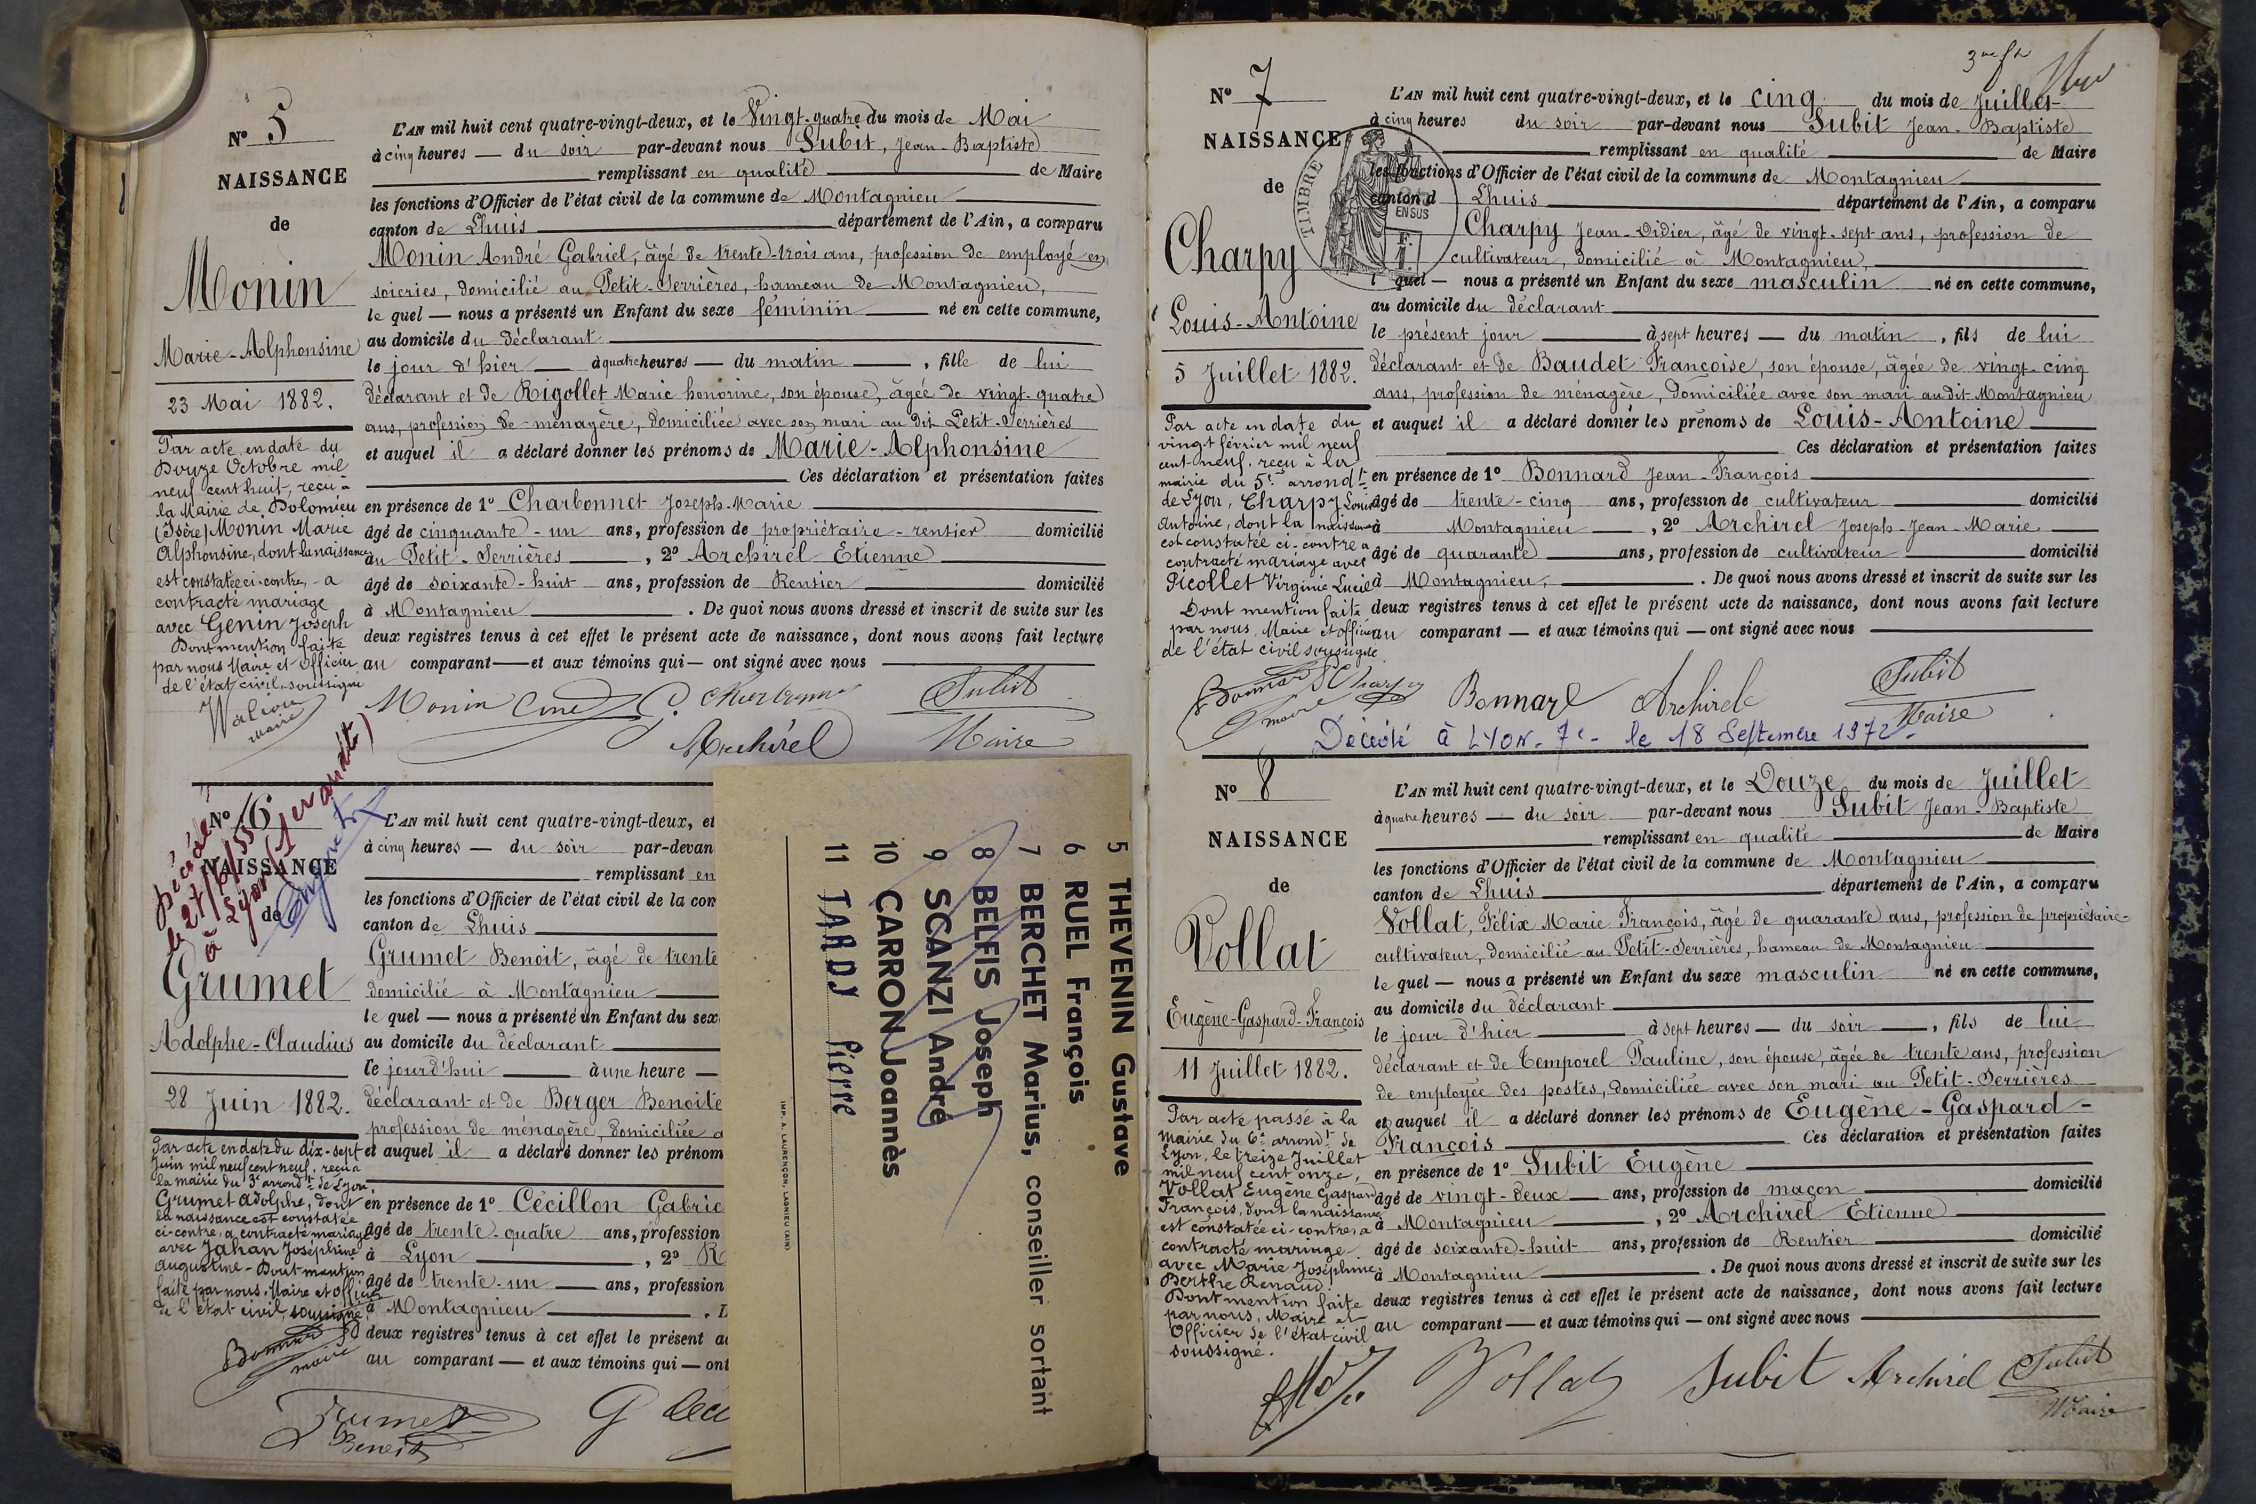 N° 5
NAISSANCE
de
Monin
Marie-Alphonsine
23 Mai 1882.
Par acte en date du
Douze Octobre mil
neuf cent huit, reçu à
la Mairie de Dolomieu
(Isère) Monin Marie
Alphonsine, dont la naissance
est constatée ci-contre, a
contracté mariage
avec Genin Joseph
Dont mention faite
par nous Maire et Officier
de l'état civil soussigné
maire
L'AN mil huit cent quatre-vingt-deux, et le Vingt-quatre du mois de Mai
à cinq heures — du soir par-devant nous Subit, Jean-Baptiste
remplissant en qualité de Maire
les fonctions d'Officier de l'état civil de la commune de Montagnieu
canton de Lhuis département de l'Ain, a comparu
Monin André Gabriel, âgé de trente-trois ans, profession de employé en
soieries, domicilié au Petit-Serrières, hameau de Montagnieu,
le quel — nous a présenté un Enfant du sexe féminin né en cette commune,
au domicile du déclarant
le jour d'hier à quatre heures — du matin, fille de lui
déclarant et de Rigollet Marie honorine, son épouse, âgée de vingt-quatre
ans, profession de ménagère, domiciliée avec son mari au dit Petit-Serrières
et auquel il a déclaré donner les prénoms de Marie-Alphonsine
Ces déclaration et présentation faites
en présence de 1° Charbonnet Joseph-Marie
âgé de cinquante-un ans, profession de propriétaire-rentier domicilié
au Petit-Serrières, 2° Archirel Etienne
âgé de soixante-huit ans, profession de Rentier domicilié
à Montagnieu. De quoi nous avons dressé et inscrit de suite sur les
deux registres tenus à cet effet le présent acte de naissance, dont nous avons fait lecture
au comparant — et aux témoins qui — ont signé avec nous
Monin Subit
Archirel Maire
N° 6
NAISSANCE
de
Décédé
le 27/6/55
à Lyon (1er arrondt)
Grumet
Adolphe-Claudius
28 Juin 1882.
Par acte en date du dix-sept
Juin mil neuf cent neuf, reçu à
la mairie du 3e arrondt de Lyon,
Grumet Adolphe, dont
la naissance est constatée
ci-contre, a contracté mariage
avec Jahan Joséphine
Augustine - Dont mention
faite par nous, Maire et Officier
de l'état civil, soussigné
maire
L'AN mil huit cent quatre-vingt-deux, et
à cinq heures — du soir par-devan
remplissant en
les fonctions d'Officier de l'état civil de la com
canton de Lhuis
Grumet Benoit, âgé de trente
domicilié à Montagnieu
le quel — nous a présenté un Enfant du sex
au domicile du déclarant
le jourd'hui à une heure —
déclarant et de Berger Benoite
profession de ménagère, domiciliée a
et auquel il a déclaré donner les prénom
en présence de 1° Cécillon Gabrie
âgé de trente-quatre ans, profession
à Lyon, 2° R
âgé de trente-un ans, profession
à Montagnieu. D
deux registres tenus à cet effet le présent a
au comparant — et aux témoins qui — ont
Grumet
Benoit
5 THEVENIN Gustave
6 RUEL François
7 BERCHET Marius, conseiller sortant
8 BELFIS Joseph
9 SCANZI André
10 CARRON Joannès
11 TARDY Pierre
IMP. A. LAURENÇON, LAGNIEU (AIN)
3me
N° 7
NAISSANCE
de
Charpy
Louis-Antoine
5 Juillet 1882.
Par acte en date du
vingt février mil neuf
cent neuf, reçu à la
mairie du 5e arrondt
de Lyon, Charpy Louis
Antoine, dont la naissance
est constatée ci-contre a
contracté mariage avec
Picollet Virginie Lucile
Dont mention faite
par nous, Maire et officier
de l'état civil soussigné
maire
TIMBRE
EN SUS
L'AN mil huit cent quatre-vingt-deux, et le cinq du mois de Juillet
à cinq heures du soir par-devant nous Subit Jean-Baptiste
remplissant en qualité de Maire
les fonctions d'Officier de l'état civil de la commune de Montagnieu
canton d Lhuis département de l'Ain, a comparu
Charpy Jean-Didier, âgé de vingt-sept ans, profession de
cultivateur, domicilié à Montagnieu,
l quel — nous a présenté un Enfant du sexe masculin né en cette commune,
au domicile du déclarant
le présent jour à sept heures — du matin, fils de lui
déclarant et de Baudet Françoise, son épouse, âgée de vingt-cinq
ans, profession de ménagère, domiciliée avec son mari audit Montagnieu
et auquel il a déclaré donner les prénoms de Louis-Antoine
Ces déclaration et présentation faites
en présence de 1° Bonnard Jean-François
âgé de trente-cinq ans, profession de cultivateur domicilié
à Montagnieu, 2° Archirel Joseph-Jean-Marie
âgé de quarante ans, profession de cultivateur domicilié
à Montagnieu. De quoi nous avons dressé et inscrit de suite sur les
deux registres tenus à cet effet le présent acte de naissance, dont nous avons fait lecture
au comparant — et aux témoins qui — ont signé avec nous
Charpy Bonnard Archirel Subit
Maire
Décédé à LYON-7e- le 18 Septembre 1972.
N° 8
NAISSANCE
de
Vollat
Eugène-Gaspard-François
11 Juillet 1882.
Par acte passé à la
mairie du 6e arrondt de
Lyon, le treize Juillet
mil neuf cent onze,
Vollat Eugène Gaspard
François, dont la naissance
est constatée ci-contre, a
contracté mariage
avec Marie Joséphine
Berthe Renaud.
Dont mention faite
par nous, Maire et
Officier de l'état civil
soussigné.
L'AN mil huit cent quatre-vingt-deux, et le Douze du mois de Juillet
à quatre heures — du soir par-devant nous Subit Jean-Baptiste
remplissant en qualité de Maire
les fonctions d'Officier de l'état civil de la commune de Montagnieu
canton de Lhuis département de l'Ain, a comparu
Vollat, Félix Marie François, âgé de quarante ans, profession de propriétaire-
cultivateur, domicilié au Petit-Serrières, hameau de Montagnieu
le quel — nous a présenté un Enfant du sexe masculin né en cette commune,
au domicile du déclarant
le jour d'hier à sept heures — du soir, fils de lui
déclarant et de Temporel Pauline, son épouse, âgée de trente ans, profession
de employée des postes, domiciliée avec son mari au Petit-Serrières
et auquel il a déclaré donner les prénoms de Eugène-Gaspard-
François Ces déclaration et présentation faites
en présence de 1° Subit Eugène
âgé de vingt-deux ans, profession de maçon domicilié
à Montagnieu, 2° Archirel Etienne
âgé de soixante-huit ans, profession de Rentier domicilié
à Montagnieu. De quoi nous avons dressé et inscrit de suite sur les
deux registres tenus à cet effet le présent acte de naissance, dont nous avons fait lecture
au comparant — et aux témoins qui — ont signé avec nous
Vollat Subit Archirel Subit
Maire